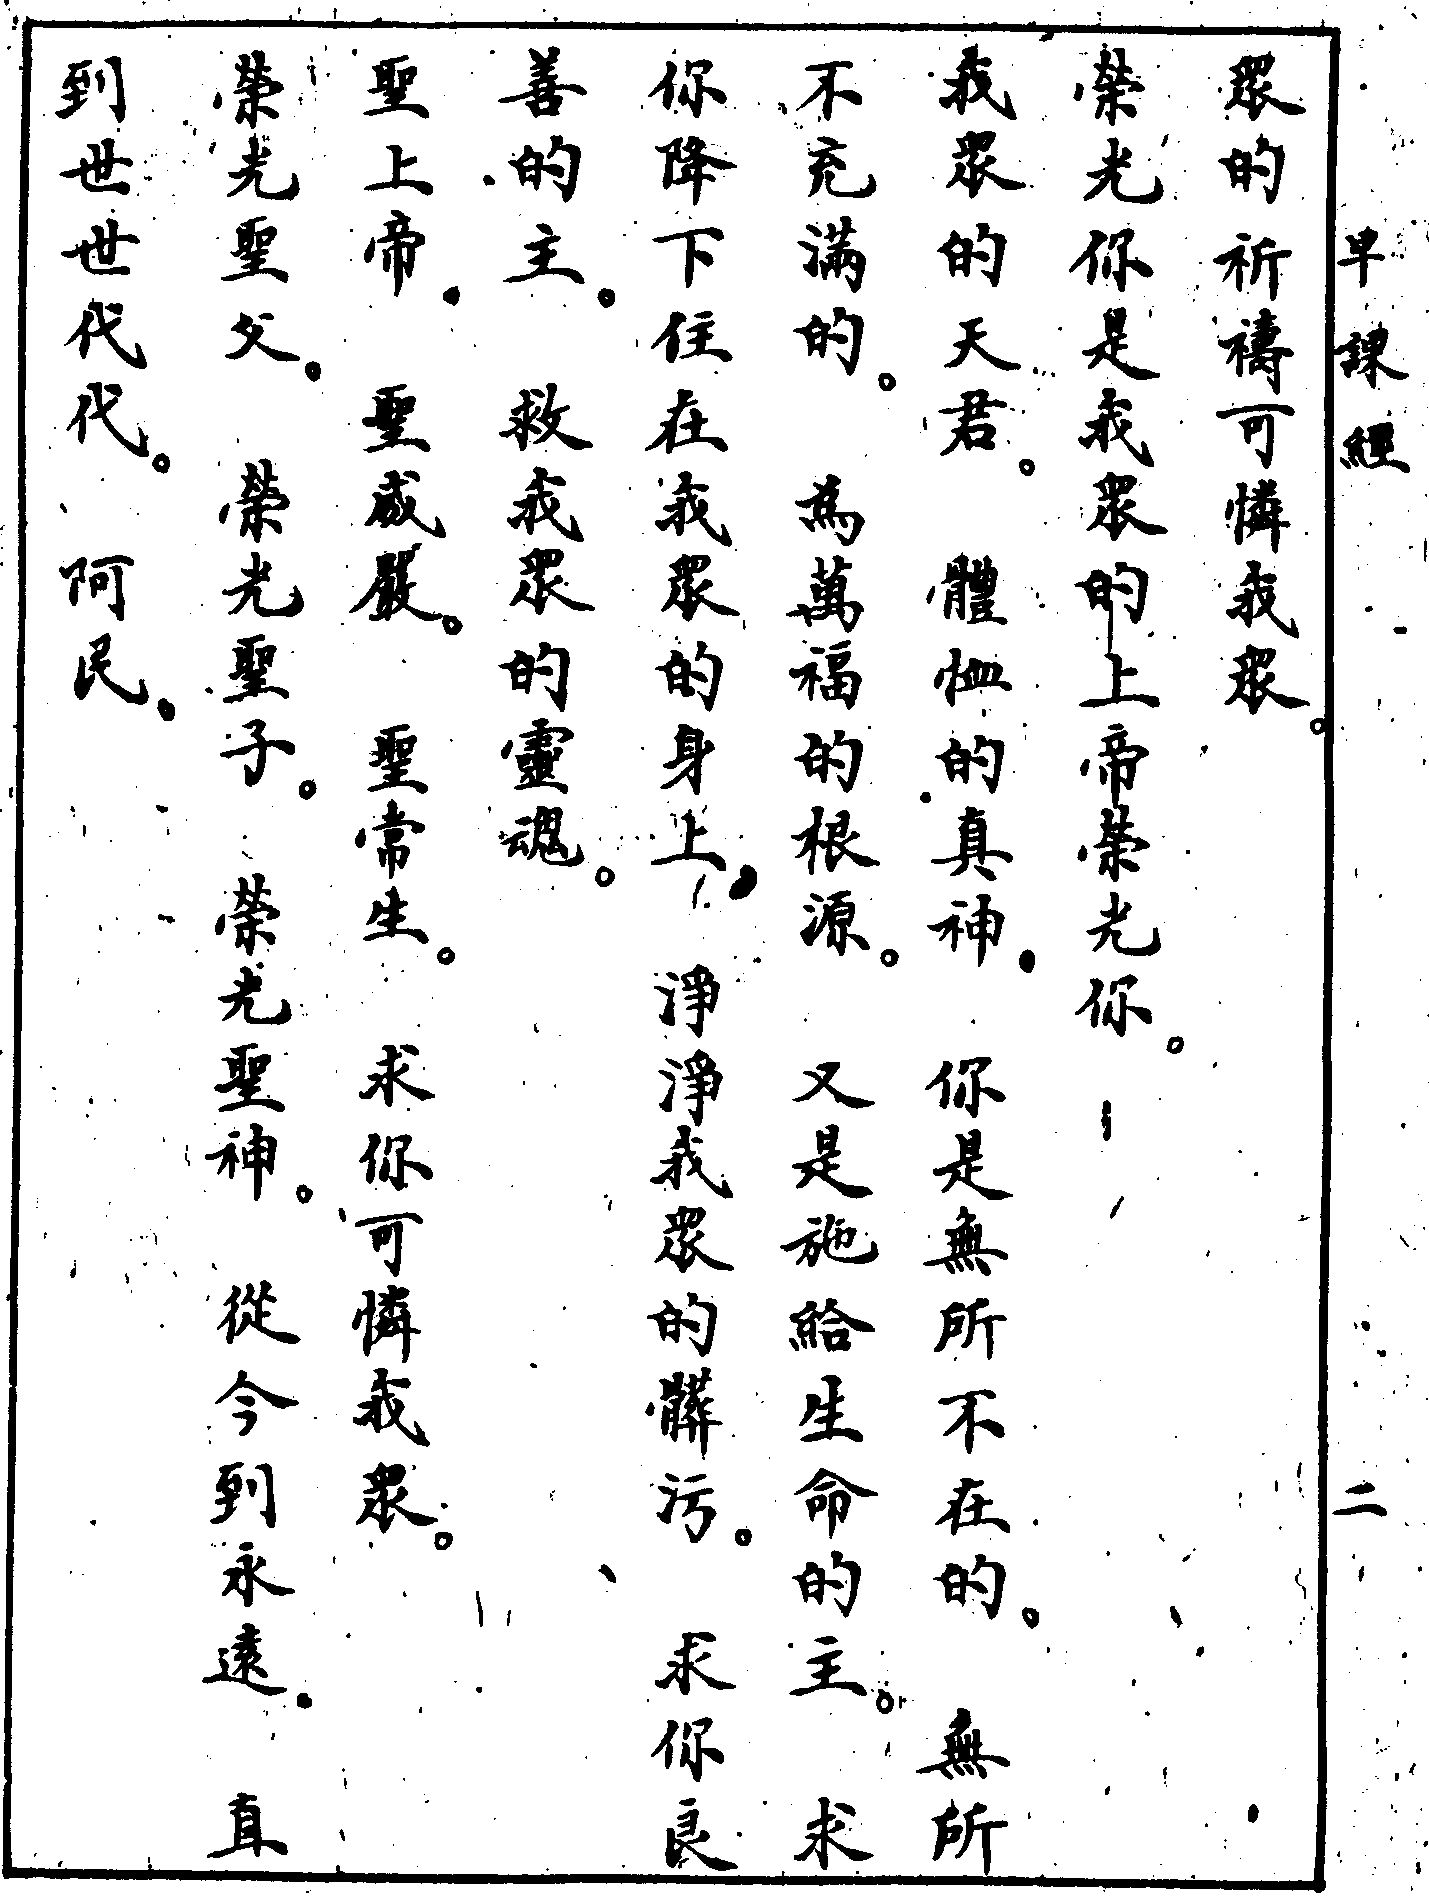 早課經 二
眾的祈禱可憐我眾。
榮光你是我眾的上帝榮光你。
我眾的天君。體恤的真神。你是無所不在的。無所
不充滿的。為萬福的根源。又是施給生命的主。求
你降下住在我眾的身上。淨淨我眾的髒污。求你良
善的主。救我眾的靈魂。
聖上帝。聖威嚴。聖常生。求你可憐我眾。
榮光聖父。榮光聖子。榮光聖神。從今到永遠。直
到世世代代。阿民。